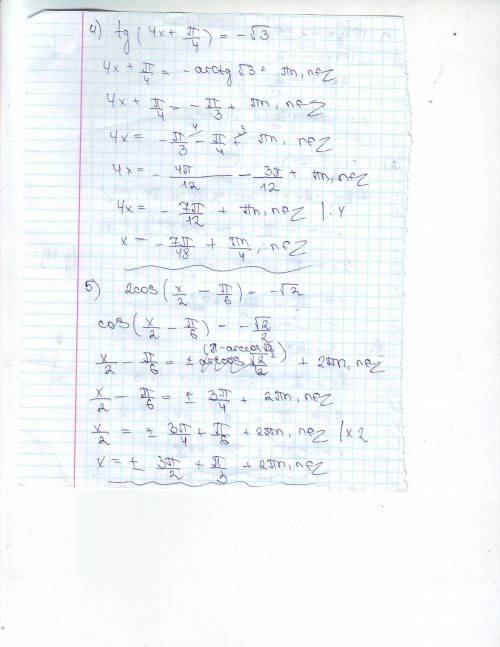 4) tg(4x + π/4) = -√3
4x + π/4 = -arctg√3 + πn, n∈Z
4x + π/4 = -π/3 + πn, n∈Z
4x = -π/3 - π/4 + πn, n∈Z
4x = -4π/12 - 3π/12 + πn, n∈Z
4x = -7π/12 + πn, n∈Z |:4
x = -7π/48 + πn/4, n∈Z
5) 2cos(x/2 - π/6) = -√2
cos(x/2 - π/6) = -√2/2
x/2 - π/6 = ±(π-arccos √2/2) + 2πn, n∈Z
x/2 - π/6 = ± 3π/4 + 2πn, n∈Z
x/2 = ± 3π/4 + π/6 + 2πn, n∈Z |x2
x = ± 3π/2 + π/3 + 2πn, n∈Z